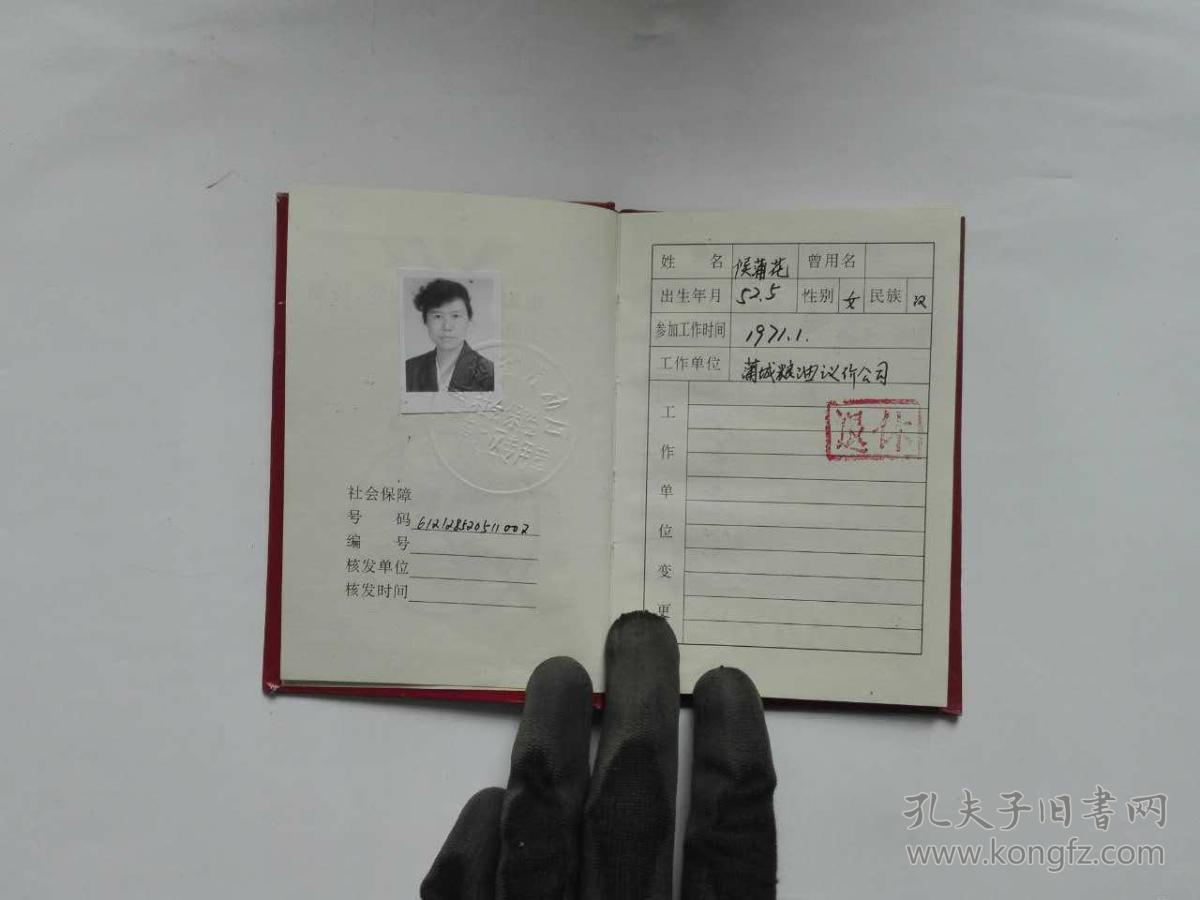 社会保障
号 码 612128520511002
编 号
核发单位
核发时间
姓 名 侯蒲花 曾用名
出生年月 52.5 性别 女 民族 汉
参加工作时间 1971.1.
工作单位 蒲城粮油议价公司
工作单位变更
退休
孔夫子旧书网
www.kongfz.com